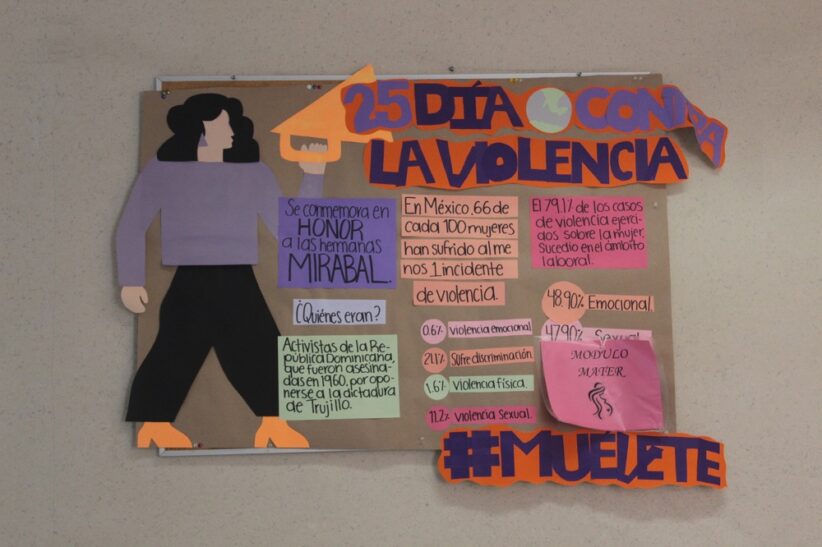 25 DÍA CONTRA
LA VIOLENCIA
Se conmemora en
HONOR
a las hermanas
MIRABAL.
¿Quiénes eran?
Activistas de la Re-
pública Dominicana,
que fueron asesina-
das en 1960, por opo-
nerse a la dictadura
de Trujillo.
En México, 66 de
cada 100 mujeres
han sufrido al me
nos 1 incidente
de violencia.
0.6% violencia emocional
21.1% Sufre discriminación
1.6% violencia física.
11.2% violencia Sexual.
El 79.1% de los casos
de violencia ejerci-
dos sobre la mujer,
sucedio en el ámbito
laboral.
48.90% Emocional
47.90% Sexual
MODULO
MATER
#MUÉVETE